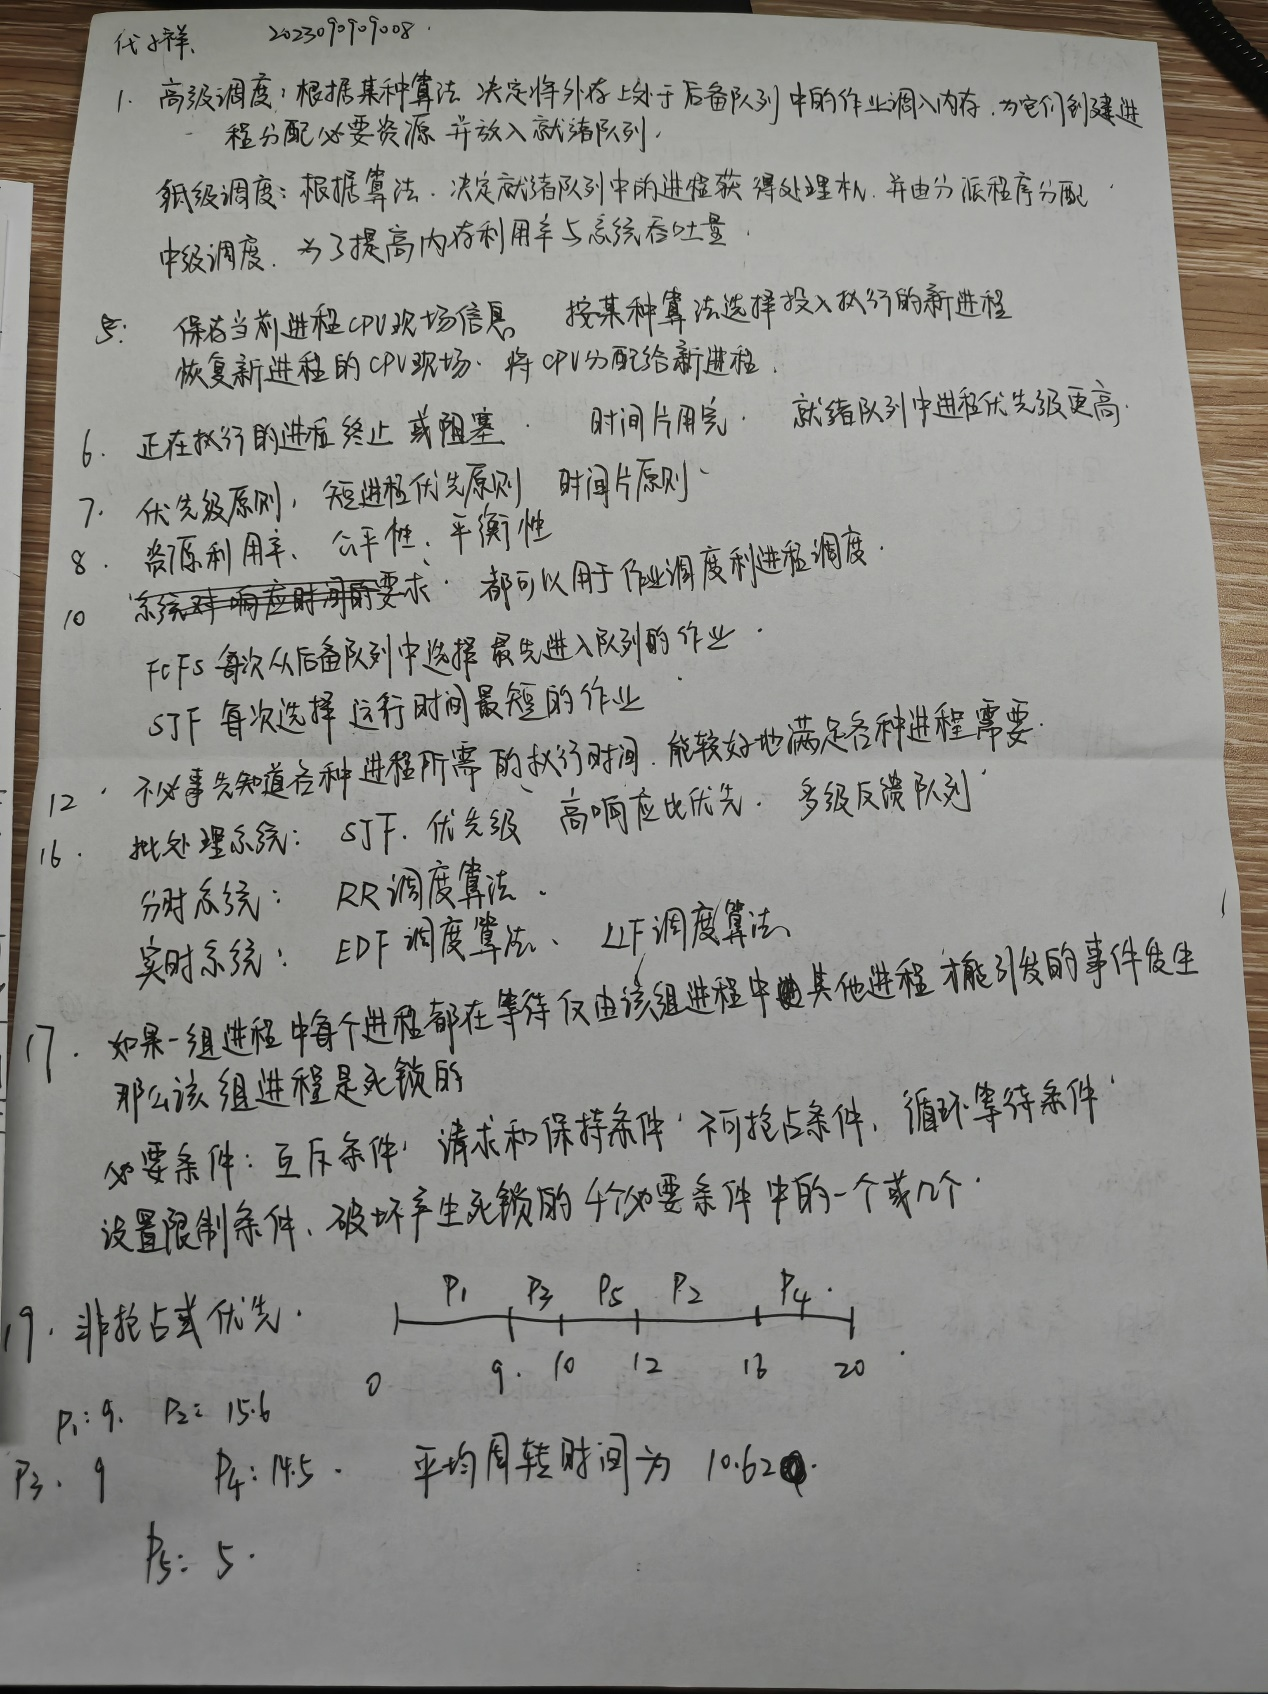 代小祥、 2023090909008.
1. 高级调度：根据某种算法 决定将外存上处于后备队列中的作业调入内存.为它们创建进
程分配必要资源 并放入就绪队列.
低级调度：根据算法.决定就绪队列中的进程获得处理机.并由分派程序分配.
中级调度. 为了提高内存利用率与系统吞吐量.
5: 保存当前进程CPU现场信息 按某种算法选择投入执行的新进程
恢复新进程的CPU现场. 将CPU分配给新进程.
6. 正在执行的进程终止或阻塞. 时间片用完. 就绪队列中进程优先级更高.
7. 优先级原则, 短进程优先原则 时间片原则、
8. 资源利用率、公平性、平衡性
10 系统对响应时间的要求. 都可以用于作业调度和进程调度.
FCFS 每次从后备队列中选择最先进入队列的作业.
SJF 每次选择运行时间最短的作业
12. 不必事先知道各种进程所需的执行时间.能较好地满足各种进程需要.
16. 批处理系统: SJF. 优先级 高响应比优先. 多级反馈队列
分时系统: RR调度算法.
实时系统: EDF调度算法、LLF调度算法、
17. 如果一组进程中每个进程都在等待仅由该组进程中其他进程才能引发的事件发生
那么该组进程是死锁的
必要条件: 互斥条件, 请求和保持条件, 不可抢占条件, 循环等待条件
设置限制条件、破坏产生死锁的4个必要条件中的一个或几个.
19. 非抢占式优先. P1 P3 P5 P2 P4.
0 9. 10 12 16 20
P1:9. P2: 15.6
P3. 9 P4: 14.5. 平均周转时间为 10.62
P5: 5.